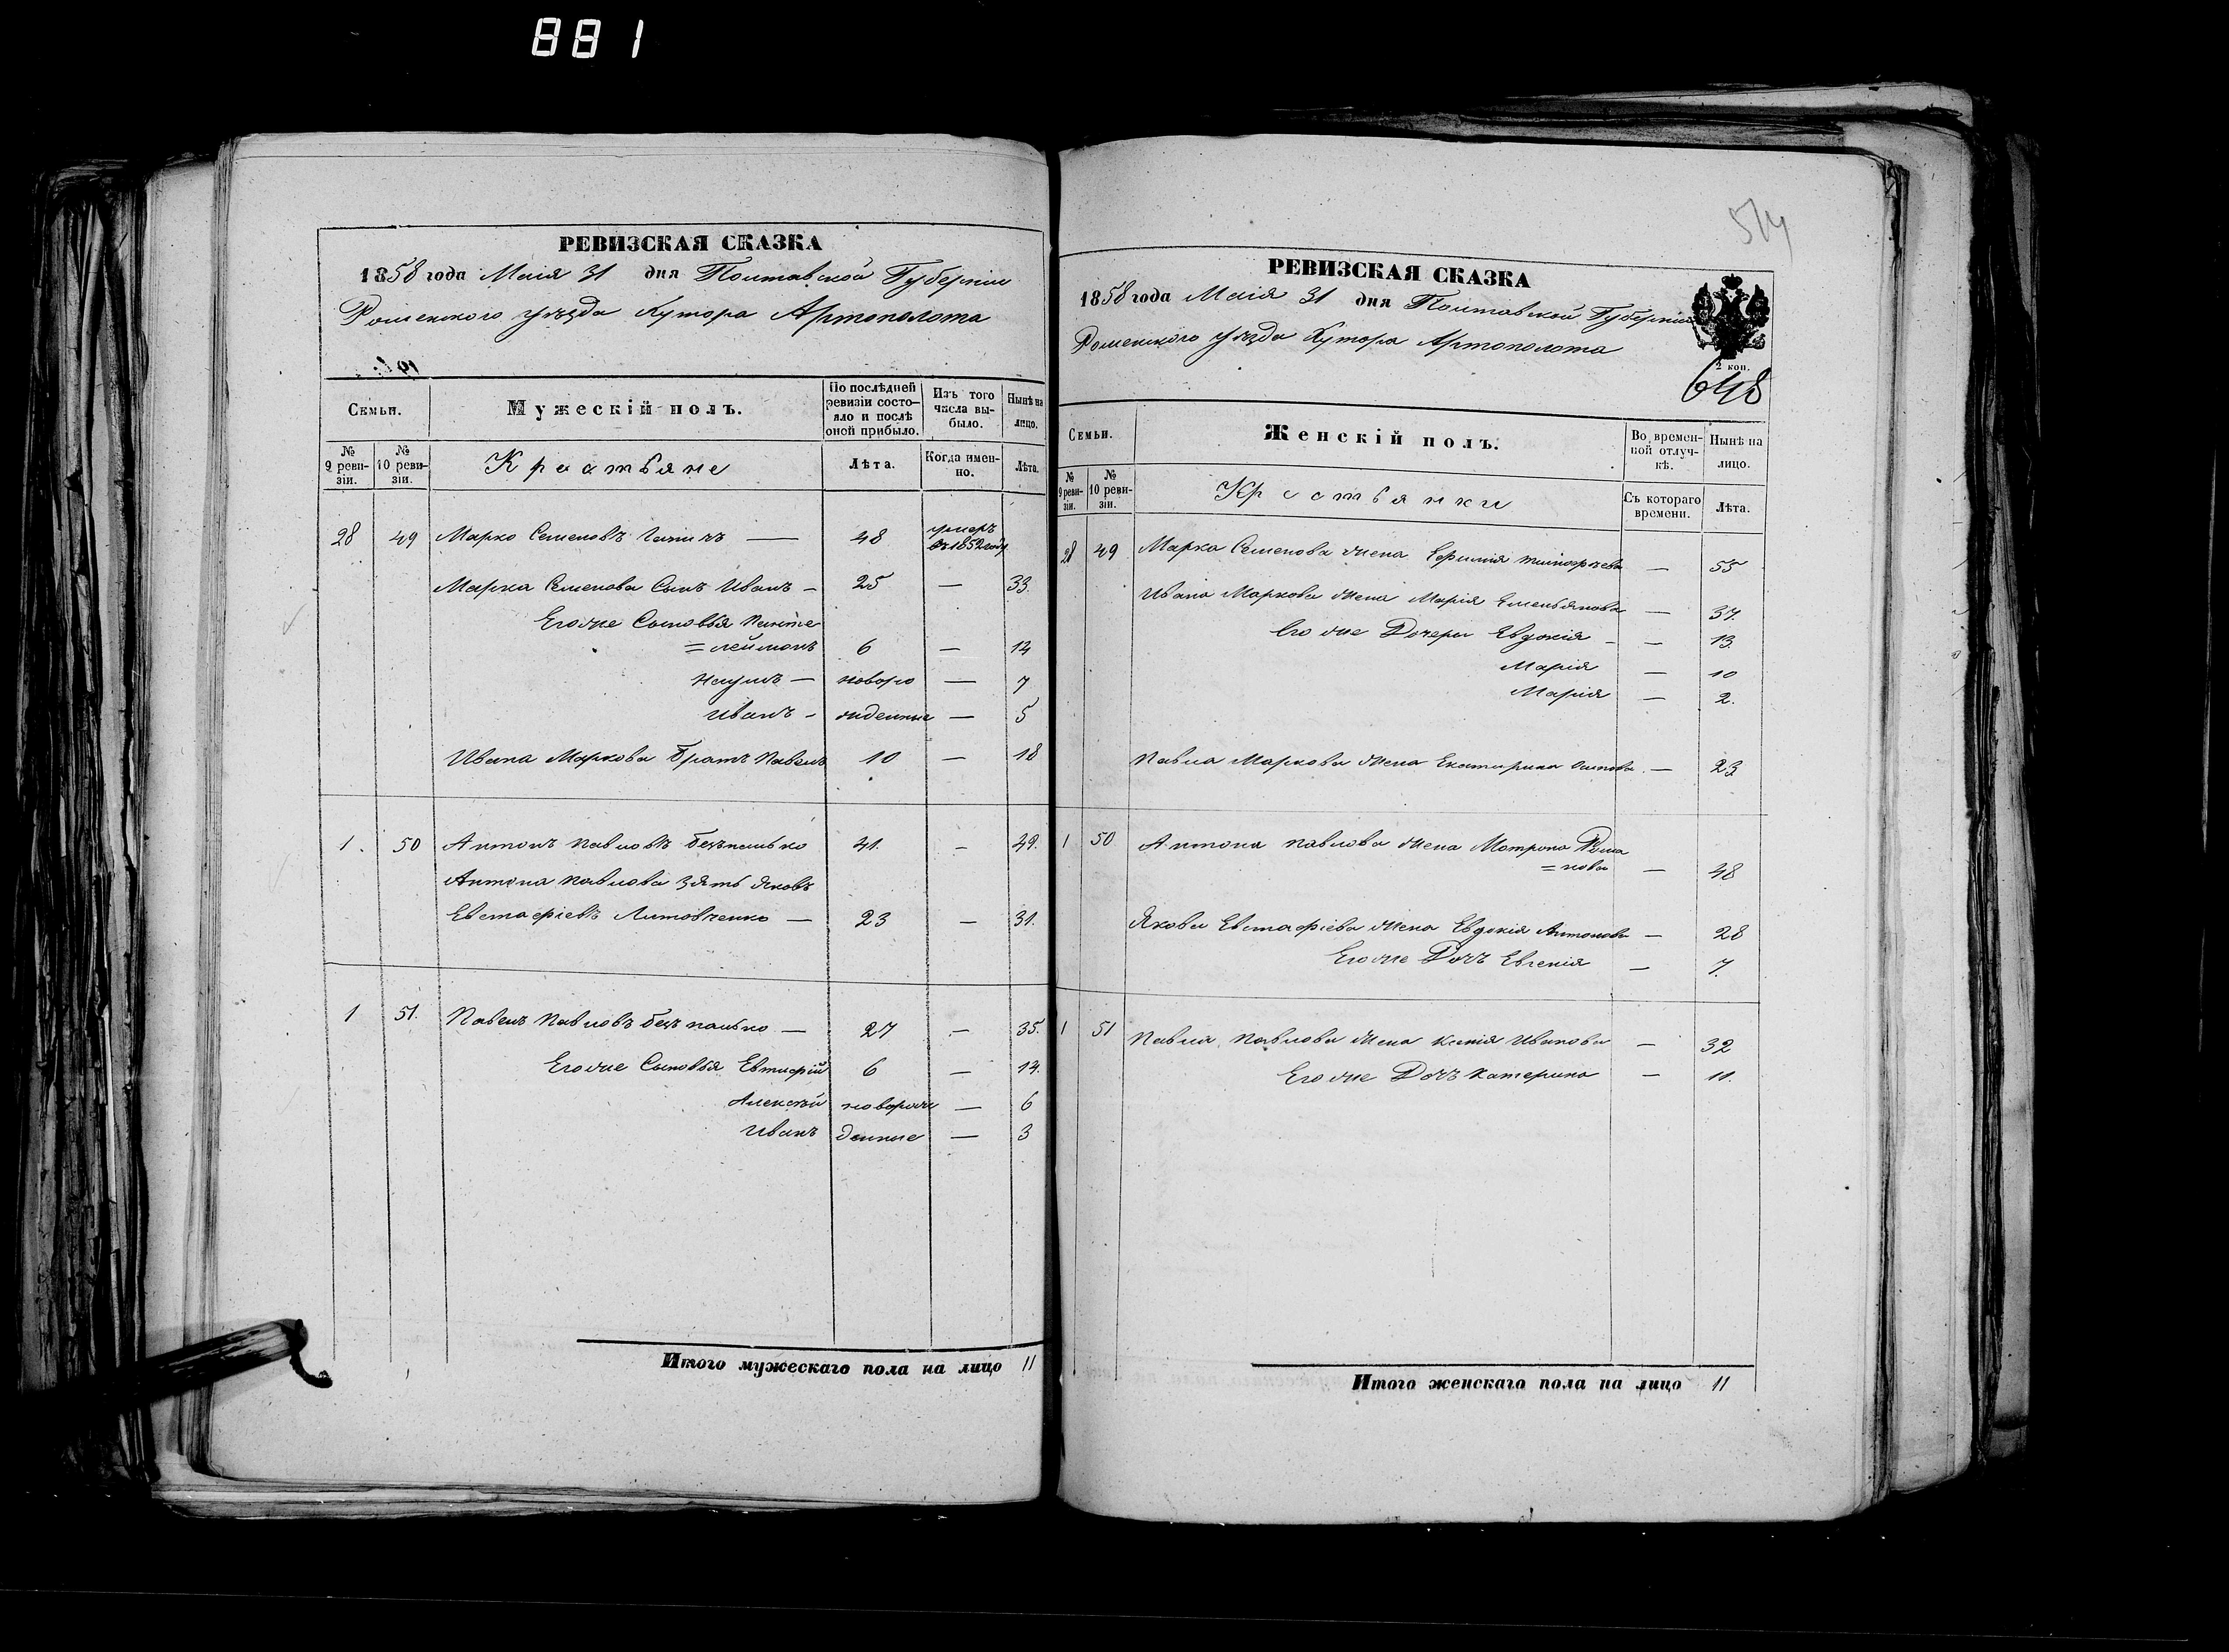 881
РЕВИЗСКАЯ СКАЗКА
1858 года Маія 31 дня Полтавской Губерніи
Роменского уѣзда Хутора Артополота
Семьи.
Мужескій полъ.
По послѣдней ревизіи состояло и послѣ оной прибыло.
Изъ того числа выбыло.
Нынѣ на лицо.
№ 9 ревизіи.
№ 10 ревизіи.
Крестьяне
Лѣта.
Когда именно.
Лѣта.
28 49 Марко Семеновъ — 48 умеръ въ 1852 году
Марка Семенова Сынъ Иванъ – 25 — 33.
Его же Сыновья Панте
=леймонъ 6 — 14
Наумъ — новоро — 7
Иванъ – жденные — 5
Ивана Маркова Братъ Павелъ 10 — 18
1. 50 Антонъ Павловъ Безпалько 41. – 49.
Антона Павлова Зять Яковъ
Евстафіевъ Литовченко — 23 — 31.
1 51. Павелъ Павловъ Безпалько — 27 — 35.
Его же Сыновья Евстафій 6 — 14.
Алексѣй новорож — 6
Иванъ денные — 3
Итого мужескаго пола на лицо 11
514
РЕВИЗСКАЯ СКАЗКА
1858 года Маія 31 дня Полтавской Губерніи
Роменского уѣзда Хутора Артополота
2 коп.
648
Семьи.
Женскій полъ.
Во временной отлучкѣ.
Нынѣ на лицо.
№ 9 ревизіи.
№ 10 ревизіи.
Крестьянки
Съ котораго времени.
Лѣта.
28 49 Марка Семенова жена Ефимія Тимофѣева — 55
Ивана Маркова жена Марія Емельянова — 37.
Его же Дочери Евдокія – — 13.
Марія — 10
Марія — 2.
Павла Маркова жена Екатерина — 23
1 50 Антона Павлова жена Мотрона Рома
=нова — 48
Якова Евстафіева жена Евдокія Антонова — 28
Его же Дочь Евгенія — 7.
1 51 Павла Павлова жена Ксенія Иванова — 32
Его же Дочь Катерина — 11.
Итого женскаго пола на лицо 11